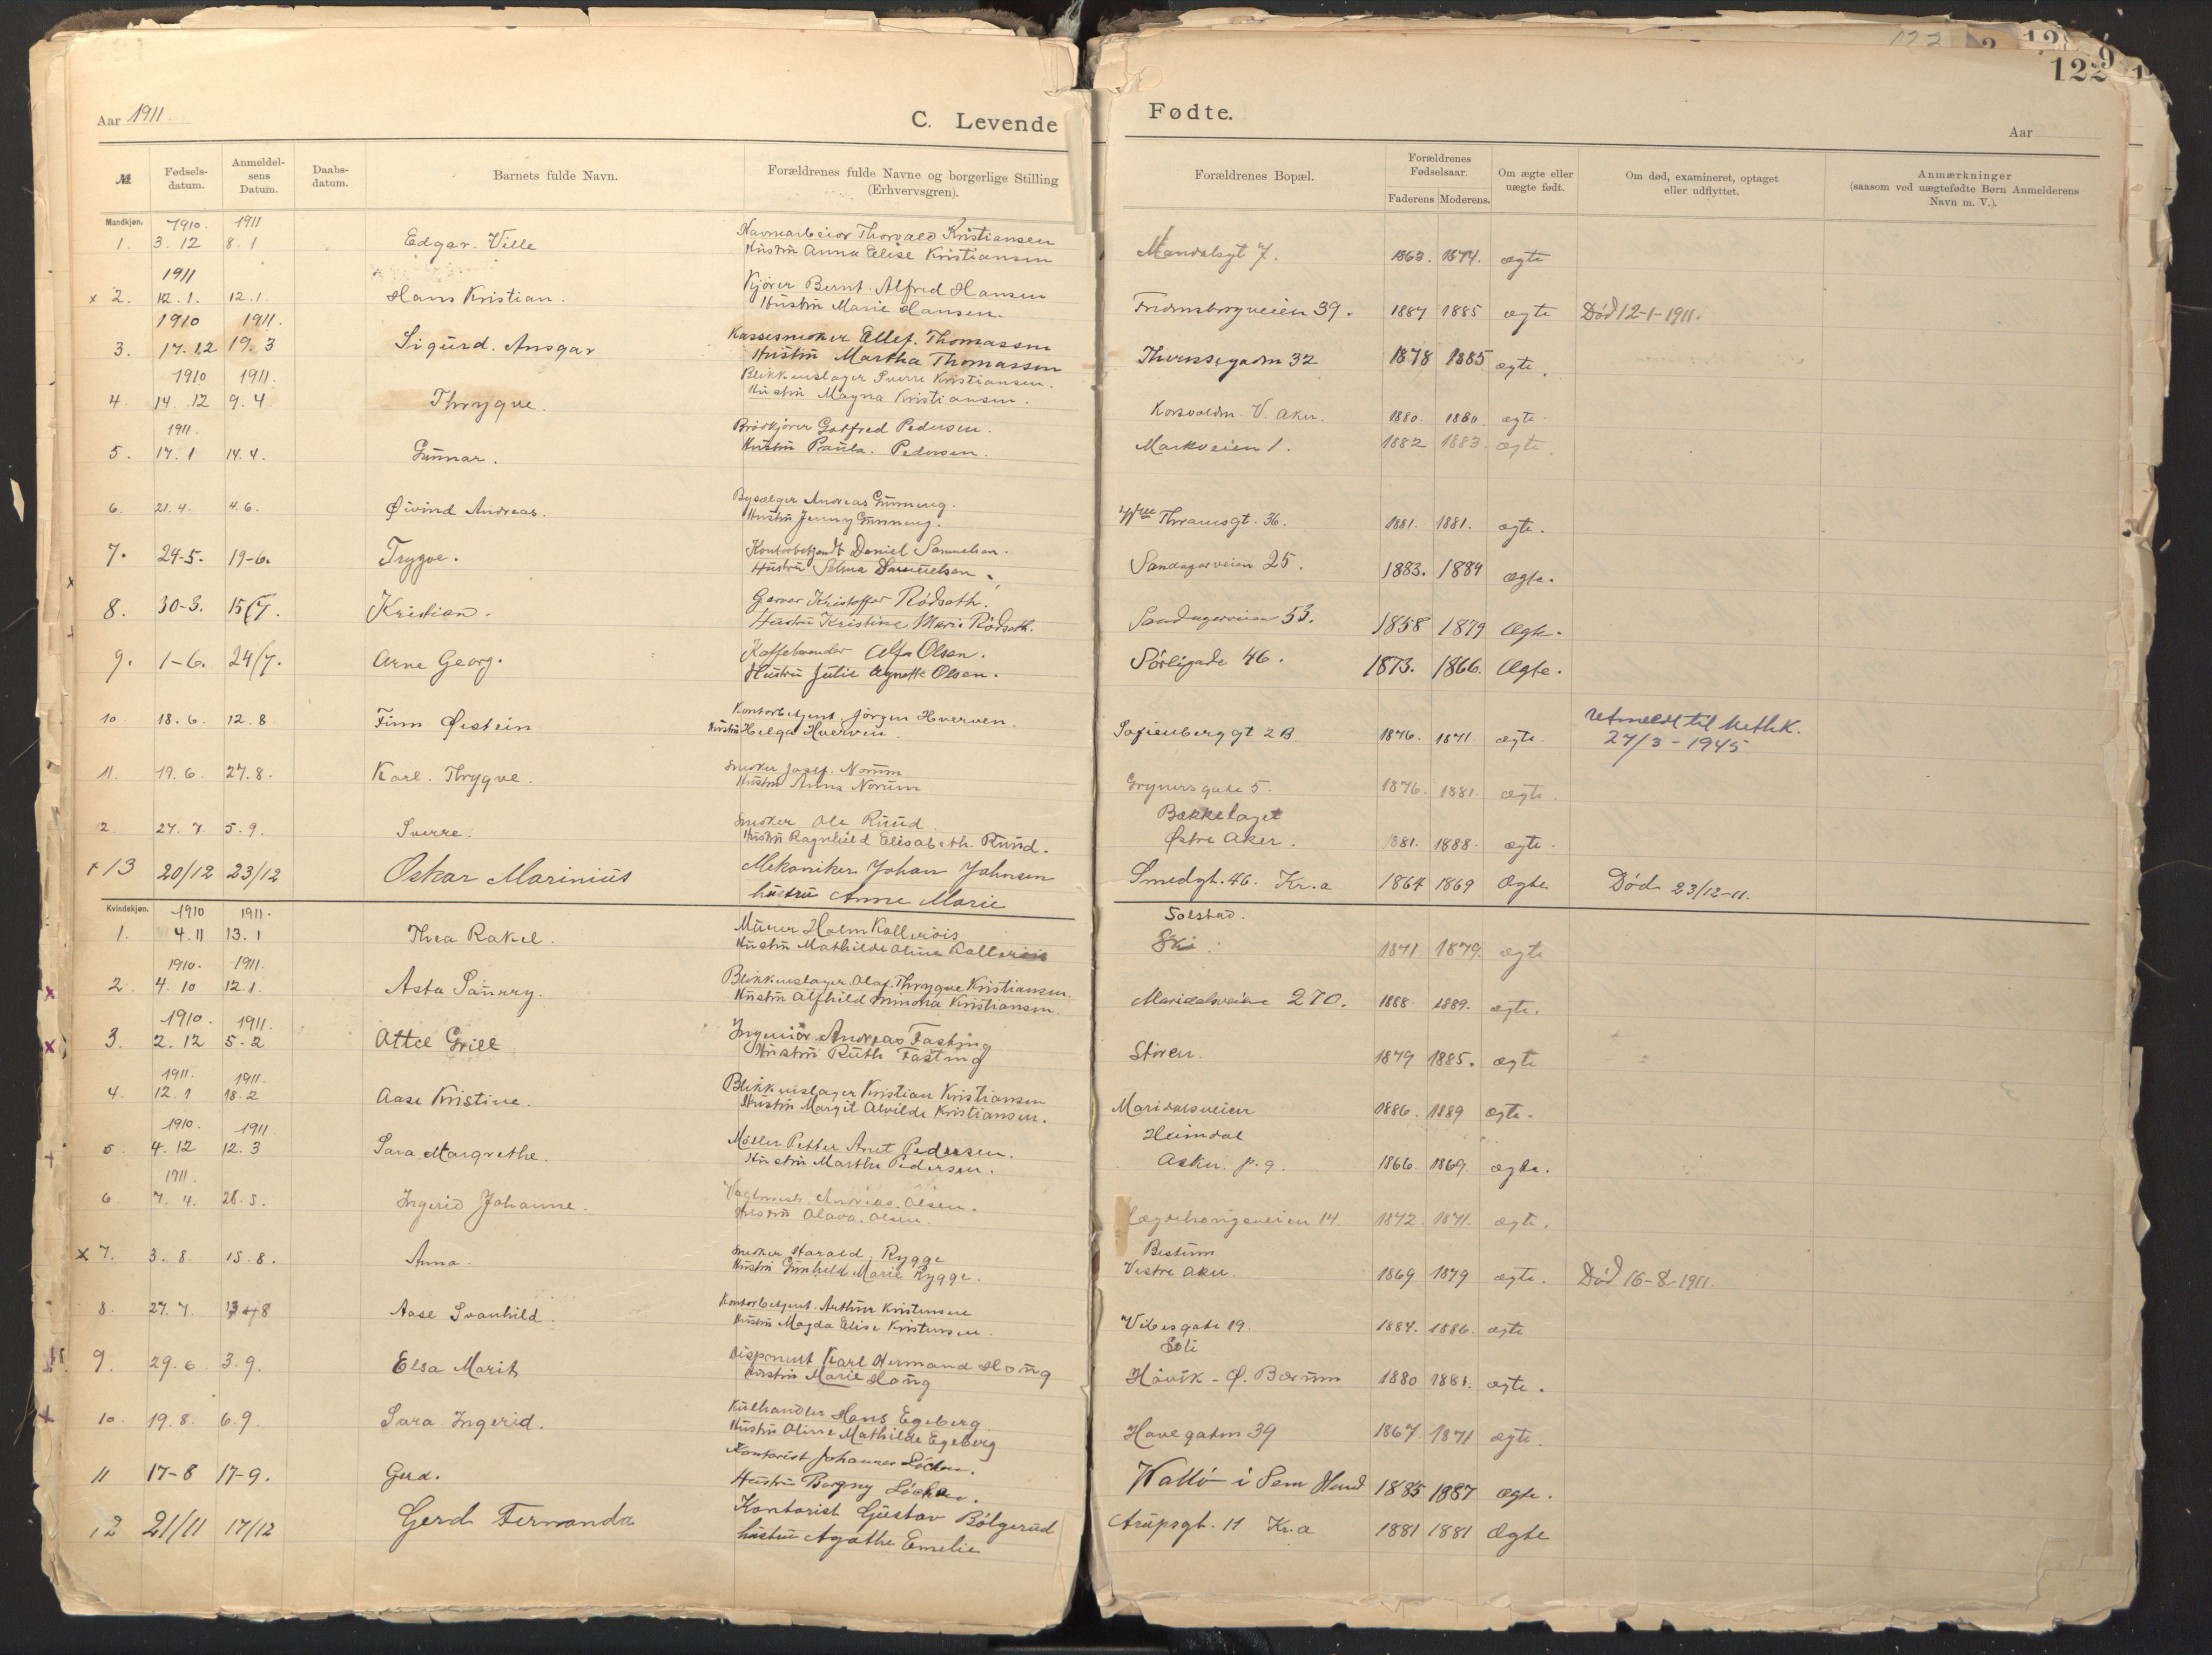 122
9
Aar 1911
C. Levende Fødte.
Aar
№
Fødsels-
datum.
Anmeldel-
sens
Datum.
Daabs-
datum.
Barnets fulde Navn.
Forældrenes fulde Navne og borgerlige Stilling
(Erhvervsgren).
Forældrenes Bopæl.
Forældrenes
Fødselsaar.
Faderens
Moderens.
Om ægte eller
uægte født.
Om død, examineret, optaget
eller udflyttet.
Anmærkninger
(saasom ved uægtefødte Børn Anmelderens
Navn m. V.).
Mandkjøn.
1910. 1911
1. 3. 12 8. 1 Edgar. Ville Havnearbeider Thorvald Kristiansen Mandalsgt 7. 1863. 1874. ægte
Hustru Anna Elise Kristiansen
1911
x 2. 12. 1. 12. 1. Hans Kristian. Kjører Bernt. Alfred Hansen Fredensborgveien 39. 1887 1885 ægte Död 12-1-1911.
Hustru Marie Hansen.
1910 1911.
3. 17. 12 19. 3 Sigurd. Ansgar Kassesnedker Ellef. Thomassen 32 1878 1885 ægte.
Hustru Martha Thomassen
1910 1911.
4. 14. 12 9. 4. Thrygve. Blikkenslager Sverre Kristiansen. V. Aker. 1880. 1880. ægte.
Hustru Magna Kristiansen.
1911.
5. 17. 1 14. 4. Gunnar. Brödkjører Gotfred Pedersen. Markveien 1. 1882 1883. ægte.
Hustru Paula. Pedersen.
6. 21. 4. 4. 6. Øivind Andreas. Bysælger Andreas Gunneng. Thranesgt. 36. 1881. 1881. ægte.
Hustru Jenny Gunneng.
7. 24-5. 19-6. Trygve. Kontorbetjendt Daniel Samuelsen. Sandagerveien 25. 1883. 1884 ægte.
Hustru Selma Samuelsen.
8. 30-3. 15/7. Kristian. Garver Kristoffer Rödseth. Sandagerveien 53. 1858 1879 Ægte.
Hustru Kristine Marie Rödseth.
9. 1-6. 24/7. Arne Georg. Kaffebrænder Alfr Olsen. Sörligade 46. 1873. 1866. Ægte.
Hustru Julie Agnette Olsen.
10 18. 6. 12. 8 Finn Øistein Kontorbetjent Jörgen Hverven. Sofienberggt 2 B. 1876. 1871. ægte. Utmeldt til Meth.K.
Hustru Helga Hverven. 27/3 - 1945
11. 19. 6. 27. 8. Karl. Thrygve. Snedker Josef. Norum Grynersgate 5. 1876. 1881. ægte.
Hustru Anna Norum
12. 27. 7 5. 9. Sverre. Snedker Ole Ruud. Bækkelaget
Hustru Ragnhild Elisabeth. Ruud. Østre Aker. 1881. 1888. ægte.
x 13 20/12 23/12 Oskar Marinius Mekaniker Johan Johnsen Smedgt. 46. Kr.a 1864 1869 Ægte Död 23/12-11.
hustru Anne Marie
Kvindekjøn.
1910 1911. Solstad.
1. 4. 11 13. 1 Thea Rakel. Murer Holm Kallerøis Ski 1871 1879. ægte
Hustru Mathilde Oline
1910. 1911.
2. 4. 10 12. 1. Asta Blikkenslager. Olaf. Thrygve Kristiansen. Maridalsveien 270. 1888 1889. ægte.
Hustru Alfhild Minona Kristiansen.
1910. 1911.
3. 2. 12 5. 2 Attel Grill Ingeniör. Andreas Fasting Støren. 1879 1885. ægte
Hustru Ruth Fasting
1911. 1911.
4. 12. 1 18. 2 Aase Kristine. Blikkenslager Kristian Kristiansen Maridalsveien 1886. 1889 ægte.
Hustru Margit Alvilde Kristiansen.
1910. 1911 Heimdal
5 4. 12 12. 3 Sara Margrethe. Möller Petter Arnt Pedersen. Asker. p.g. 1866. 1869. ægte.
Hustru Martha Pedersen.
1911.
6 7. 4. 28. 5. Ingerid Johanne. Andreas. Olsen. 14 1872. 1871. ægte.
Hustru Olava. Olsen.
x 7. 3. 8. 15. 8. Anna. Snedker Harald. Rygge Bestum
Hustru Gunhild Marie Rygge. Vestre Aker. 1869 1879 ægte. Död 16-8-1911.
8. 27. 7. Aase Svanhild. Kontorbetjent. Arthur Kristensen Vibesgate 19. 1884. 1886. ægte
Hustru Magda Elise Kristensen.
9. 29. 6 3. 9. Elsa Marit Disponent Karl Hermand Houg Soli
Hustru Marie Houg Håvik - Ø. Bærum 1880 1881. ægte.
10. 19. 8. 6. 9. Sara Ingerid. Kulhandler Hans Egeberg Havegaten 39 1867 1871 ægte.
Hustru Oline Mathilde Egeberg
11 17-8 17-9. Gerd. Kontorist Johannes Vallö i Sem 1885 1887 ægte.
Hustru Borgny
12 21/11 17/12 Gerd Fernanda Kontorist Gustav Bölgerud Arupsgt. 11 Kr.a 1881 1881 Ægte
hustru Agathe Emelie